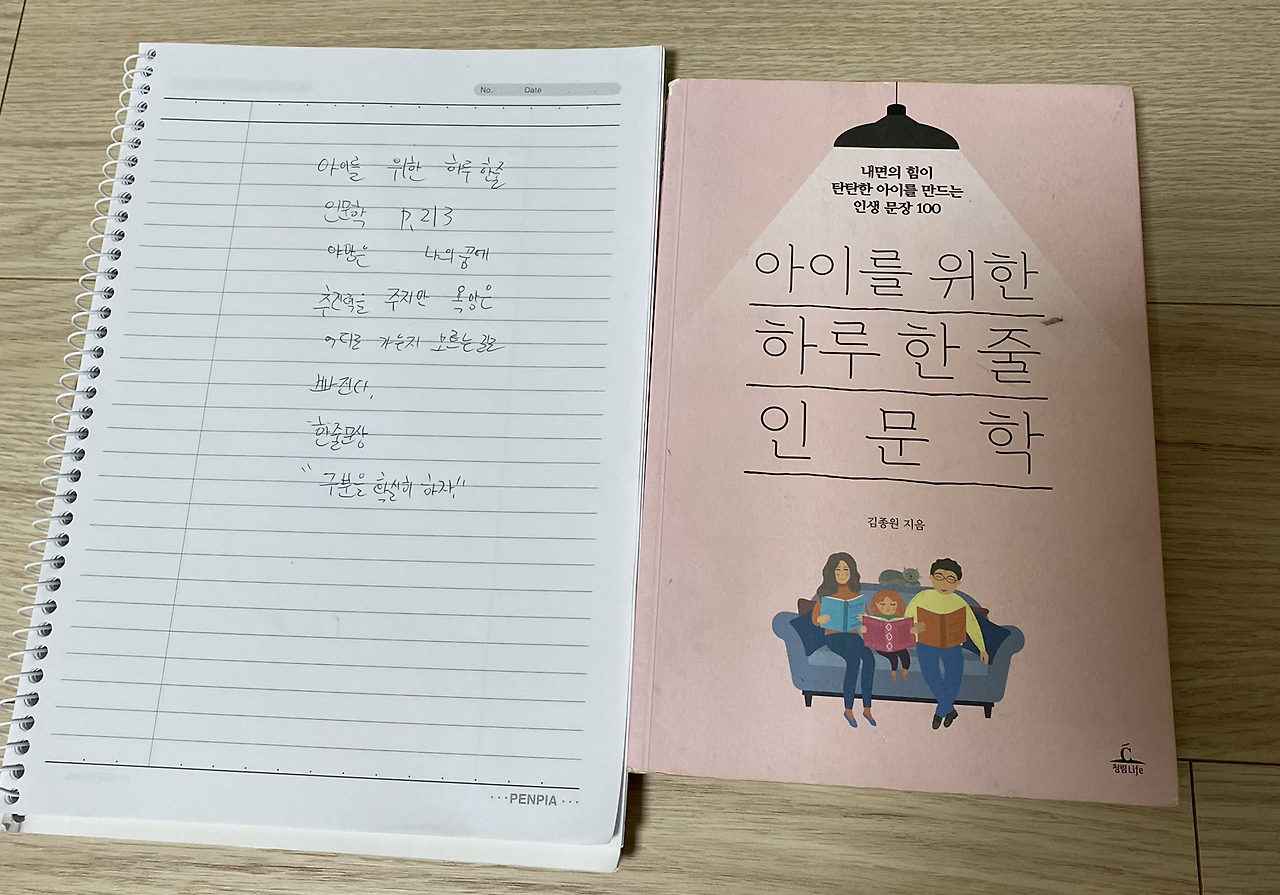 No. Date
아이를 위한 하루 한줄
인문학 P.213
야망은 나의 꿈에
추진력을 주지만 욕망은
어디로 가는지 모르는 길로
빠진다.
한줄문장
"구분을 확실히 하자."
···PENPIA···
내면의 힘이
탄탄한 아이를 만드는
인생 문장 100
아이를 위한
하루 한 줄
인문학
김종원 지음
청림Life